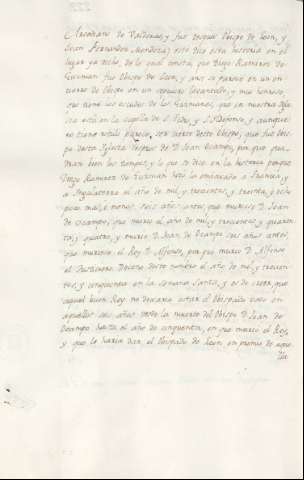 Arcediano de Valderas, y fue despues Obispo de Leon, y
Juan Fernandez Mendoza; esto dice esta historia en el
lugar ya dicho, de lo qual consta, que Diego Ramirez de
Guzman fue Obispo de Leon, y assi se parece en un en
tierro de Obispo en un sepulcro levantado, y mui honroso,
que tiene los escudos de los Guzmanes, que en nuestra Igle
sia está en la capilla de S. Ildefonso, y aunque
no tiene rotulo parece, ser deste Obispo, que fue Obis
po desta Iglesia despues de D. Juan Ocampo, por que pue
dan bien los tiempos, y lo que se dice en la historia porque
Diego Ramirez de Guzman hizo la embaxada a Francia, y
a Inglaterra el año de mil, y trescientos, y treinta, y ocho
poco mas, o menos seis años antes, que muriese D. Juan
de Ocampo, que murio el año de mil, y trescientos y quaren
ta, y quatro, y murio D. Juan de Ocampo seis años antes,
que muriese el Rey D. Alfonso, por que murio D. Alfonso
el Justiciero Onceno deste nombre el año de mil, y trescien
tos, y cinquenta en la Semana Santa, y es de creer, que
aquel buen Rey no dexaria estar el Obispado vaco en
aquellos seis años desde la muerte del Obispo D. Juan de
Ocampo hasta el año de cinquenta, en que murio el Rey,
y que le haria dar el Obispado de Leon en premio de aque
lla